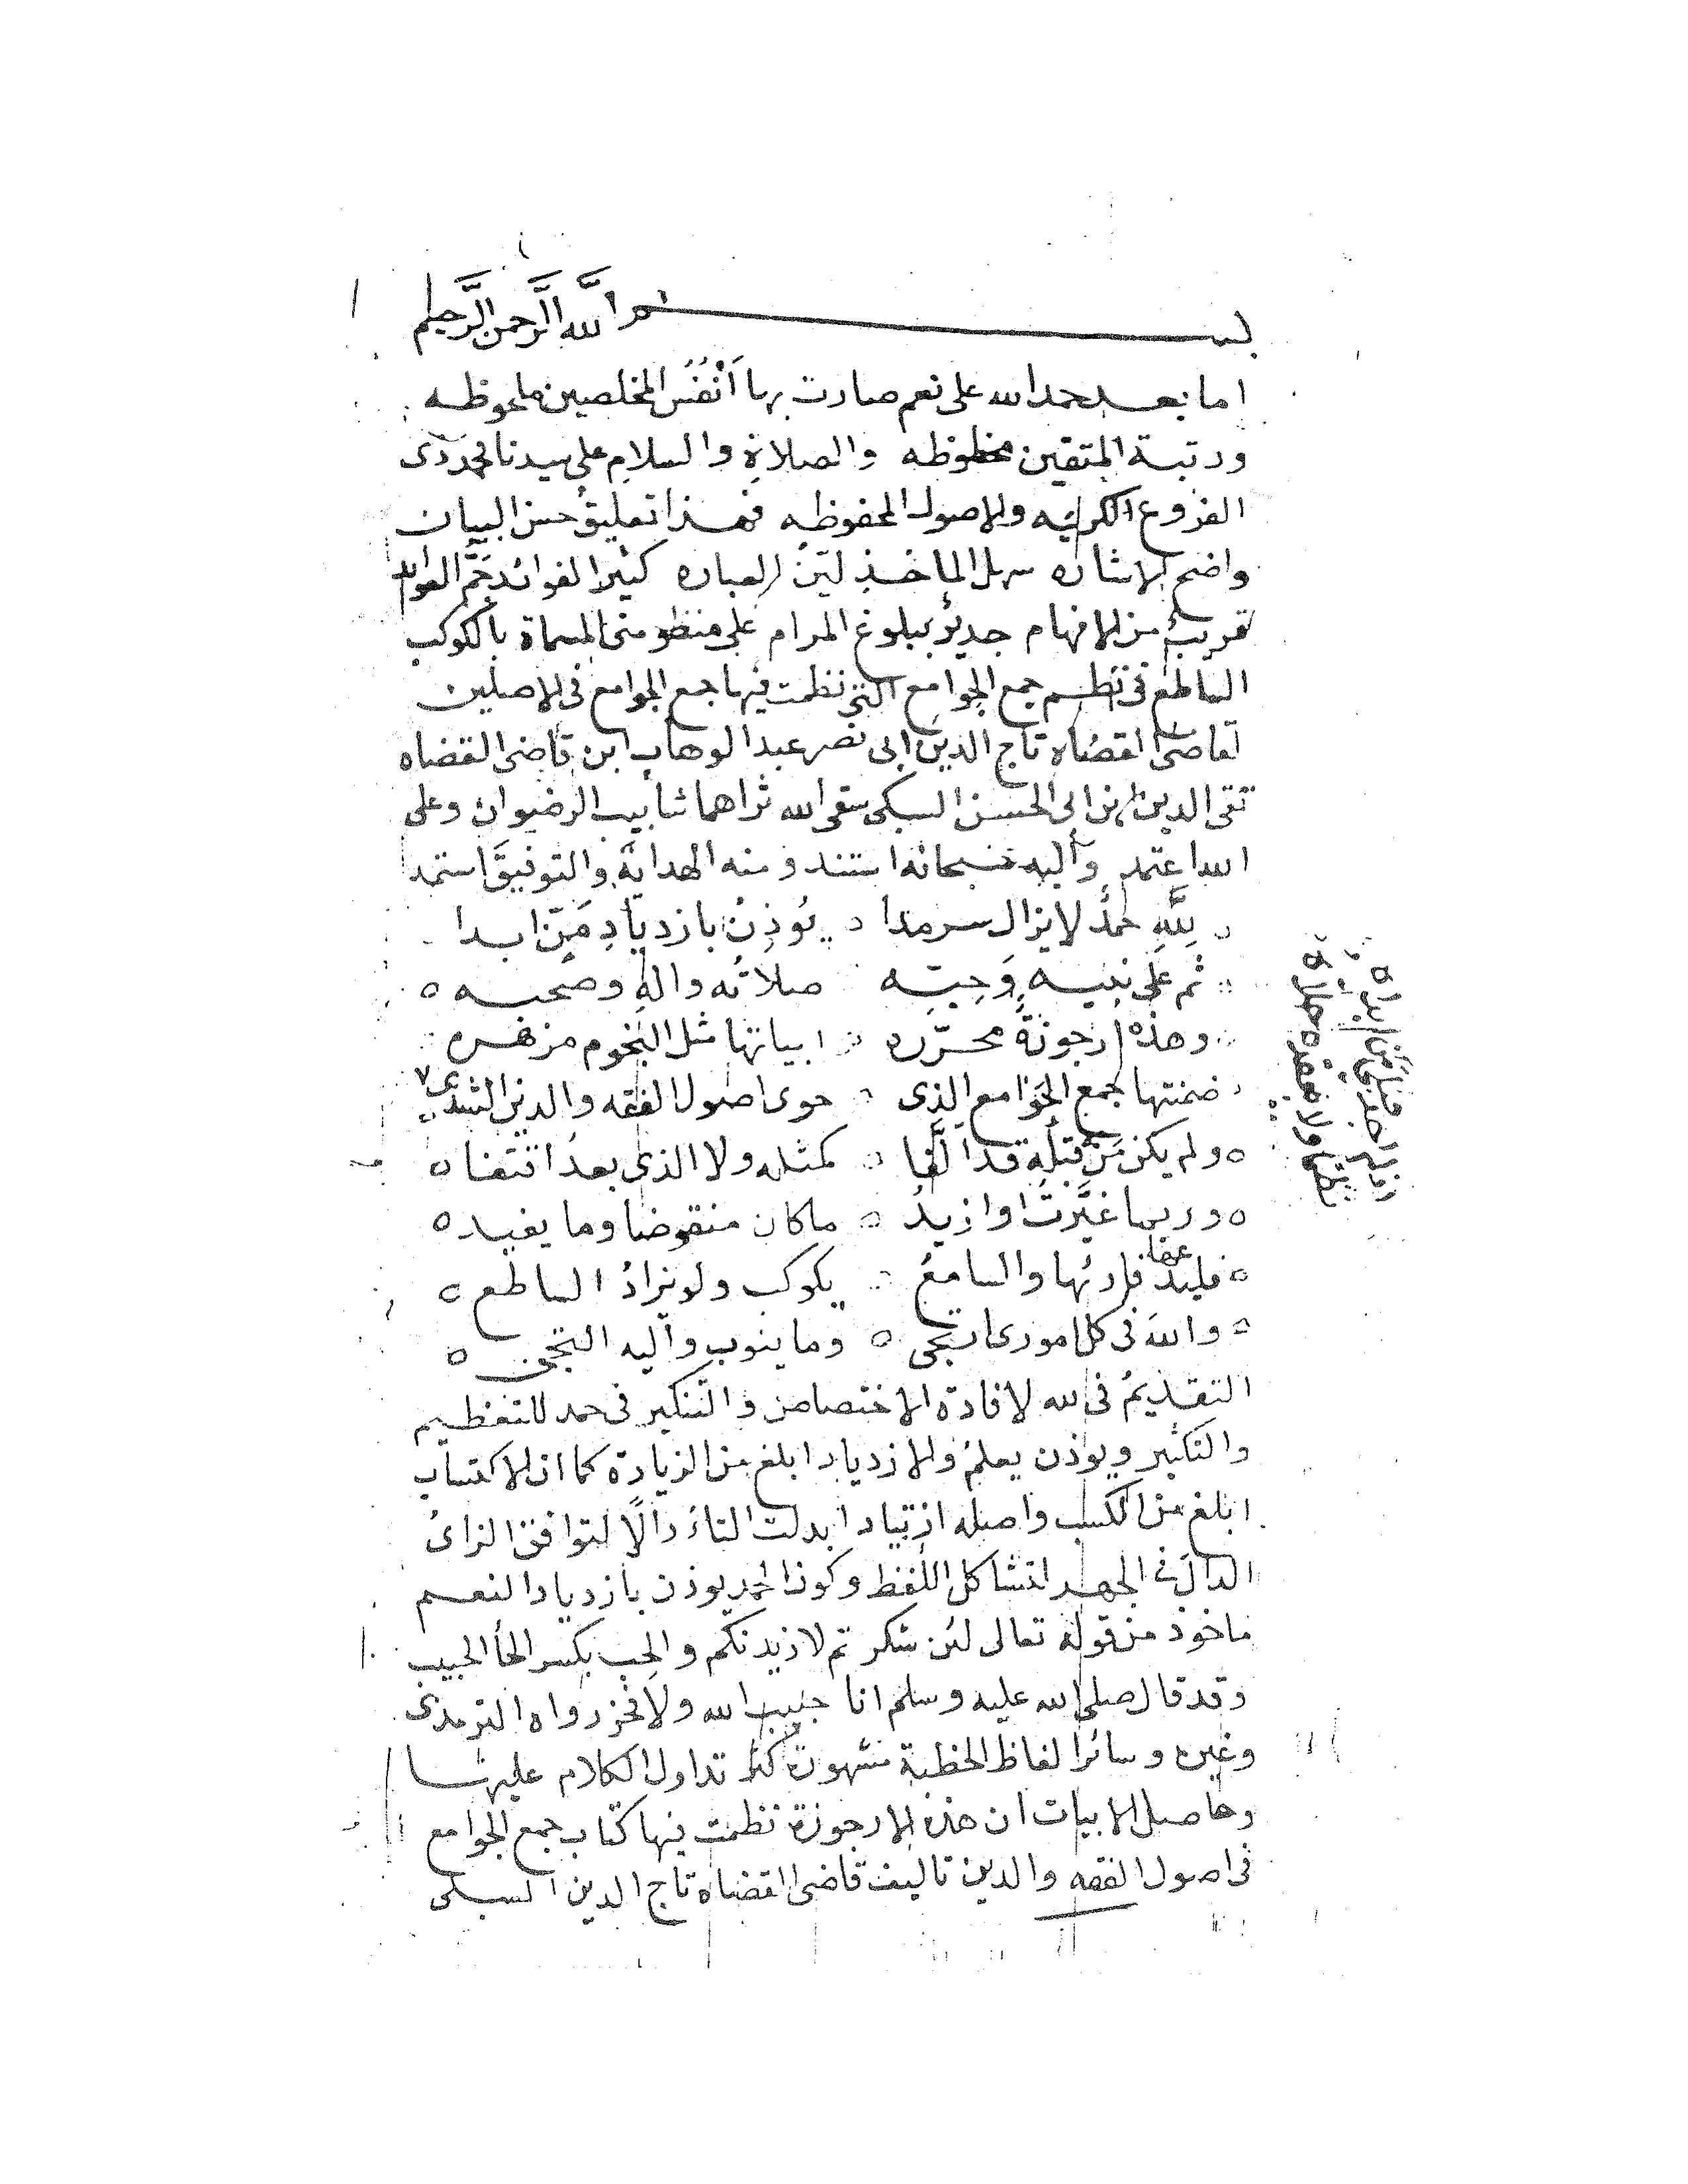 بسم الله الرحمن الرحيم
اما بعد حمد الله على نعم صارت بها أنفُسُ المخلصين ملحوظه
ورتبة المتقين محظوظه والصلاة والسلام على سيدنا محمد ذى
الفروع الكريمه والاصول المحفوظه فهذا تعليقُ حسن البيان
واضح الاشاره سهل الماخذ ليّن العباره كثير الفوائد جَمّ العوائد
قريبٌ من الافهام جديرٌ ببلوغ المرام على منظومتى المسماة بالكوكب
الساطع فى نظم جمع الجوامع التى نظمت فيها جمع الجوامع فى الاصلين
لقاضى القضاه تاج الدين ابى نصر عبد الوهاب ابن قاضى القضاه
تقى الدين ابى الحسن السبكى سقى الله ثراهما شابيب الرضوان وعلى
الله اعتمد واليه سبحانه استند ومنه الهداية والتوفيق استمد
للهِ حمدٌ لا يزال سرمدا يُوذِنُ بازديادِ مَنّ ابدا
ثم على نبيه وَحِبّه صلاتُه واله وصحبه
وهذه ارجوزةٌ محرّره ابياتها مثل النجوم مزهره
ضمنتها جمع الجوامع الذى حوى اصول الفقه والدين الشذى
ولم يكن مَن قبلَه قد ألَّفا كمثله ولا الذى بعدُ اقتفا
وربما غيَّرتُ او ازيدُ ما كان منقوضا وما يفيد
فليدعها قارئها والسامعُ بكوكب ولو يُزادُ الساطع
والله فى كل امورى ارتجى وما ينوب واليه التجى
التقديمُ فى لله لافادة الاختصاص والتنكير فى حمد للتعظيم
والتكثير ويوذن يعلمُ والازدياد ابلغ من الزيادة كما ان الاكتساب
ابلغ من الكسب واصله ازتياد ابدلت التاءُ دالًا لتوافق الزاىُ
الدالَ فى الجهر لتشاكل اللفظ وكون الحمد يوذن بازدياد النعم
ماخوذ من قوله تعالى لئن شكرتم لازيدنكم والحِب بكسر الحاء الحبيب
وقد قال صلى الله عليه وسلم انا حبيب الله ولا فخر رواه الترمذى
وغيره وسائر الفاظ الخطبة مشهورةٌ كثر تداول الكلام عليها
وحاصل الابيات ان هذه الارجوزة نظمت فيها كتاب جمع الجوامع
فى اصول الفقه والدين تاليف قاضى القضاه تاج الدين السبكى